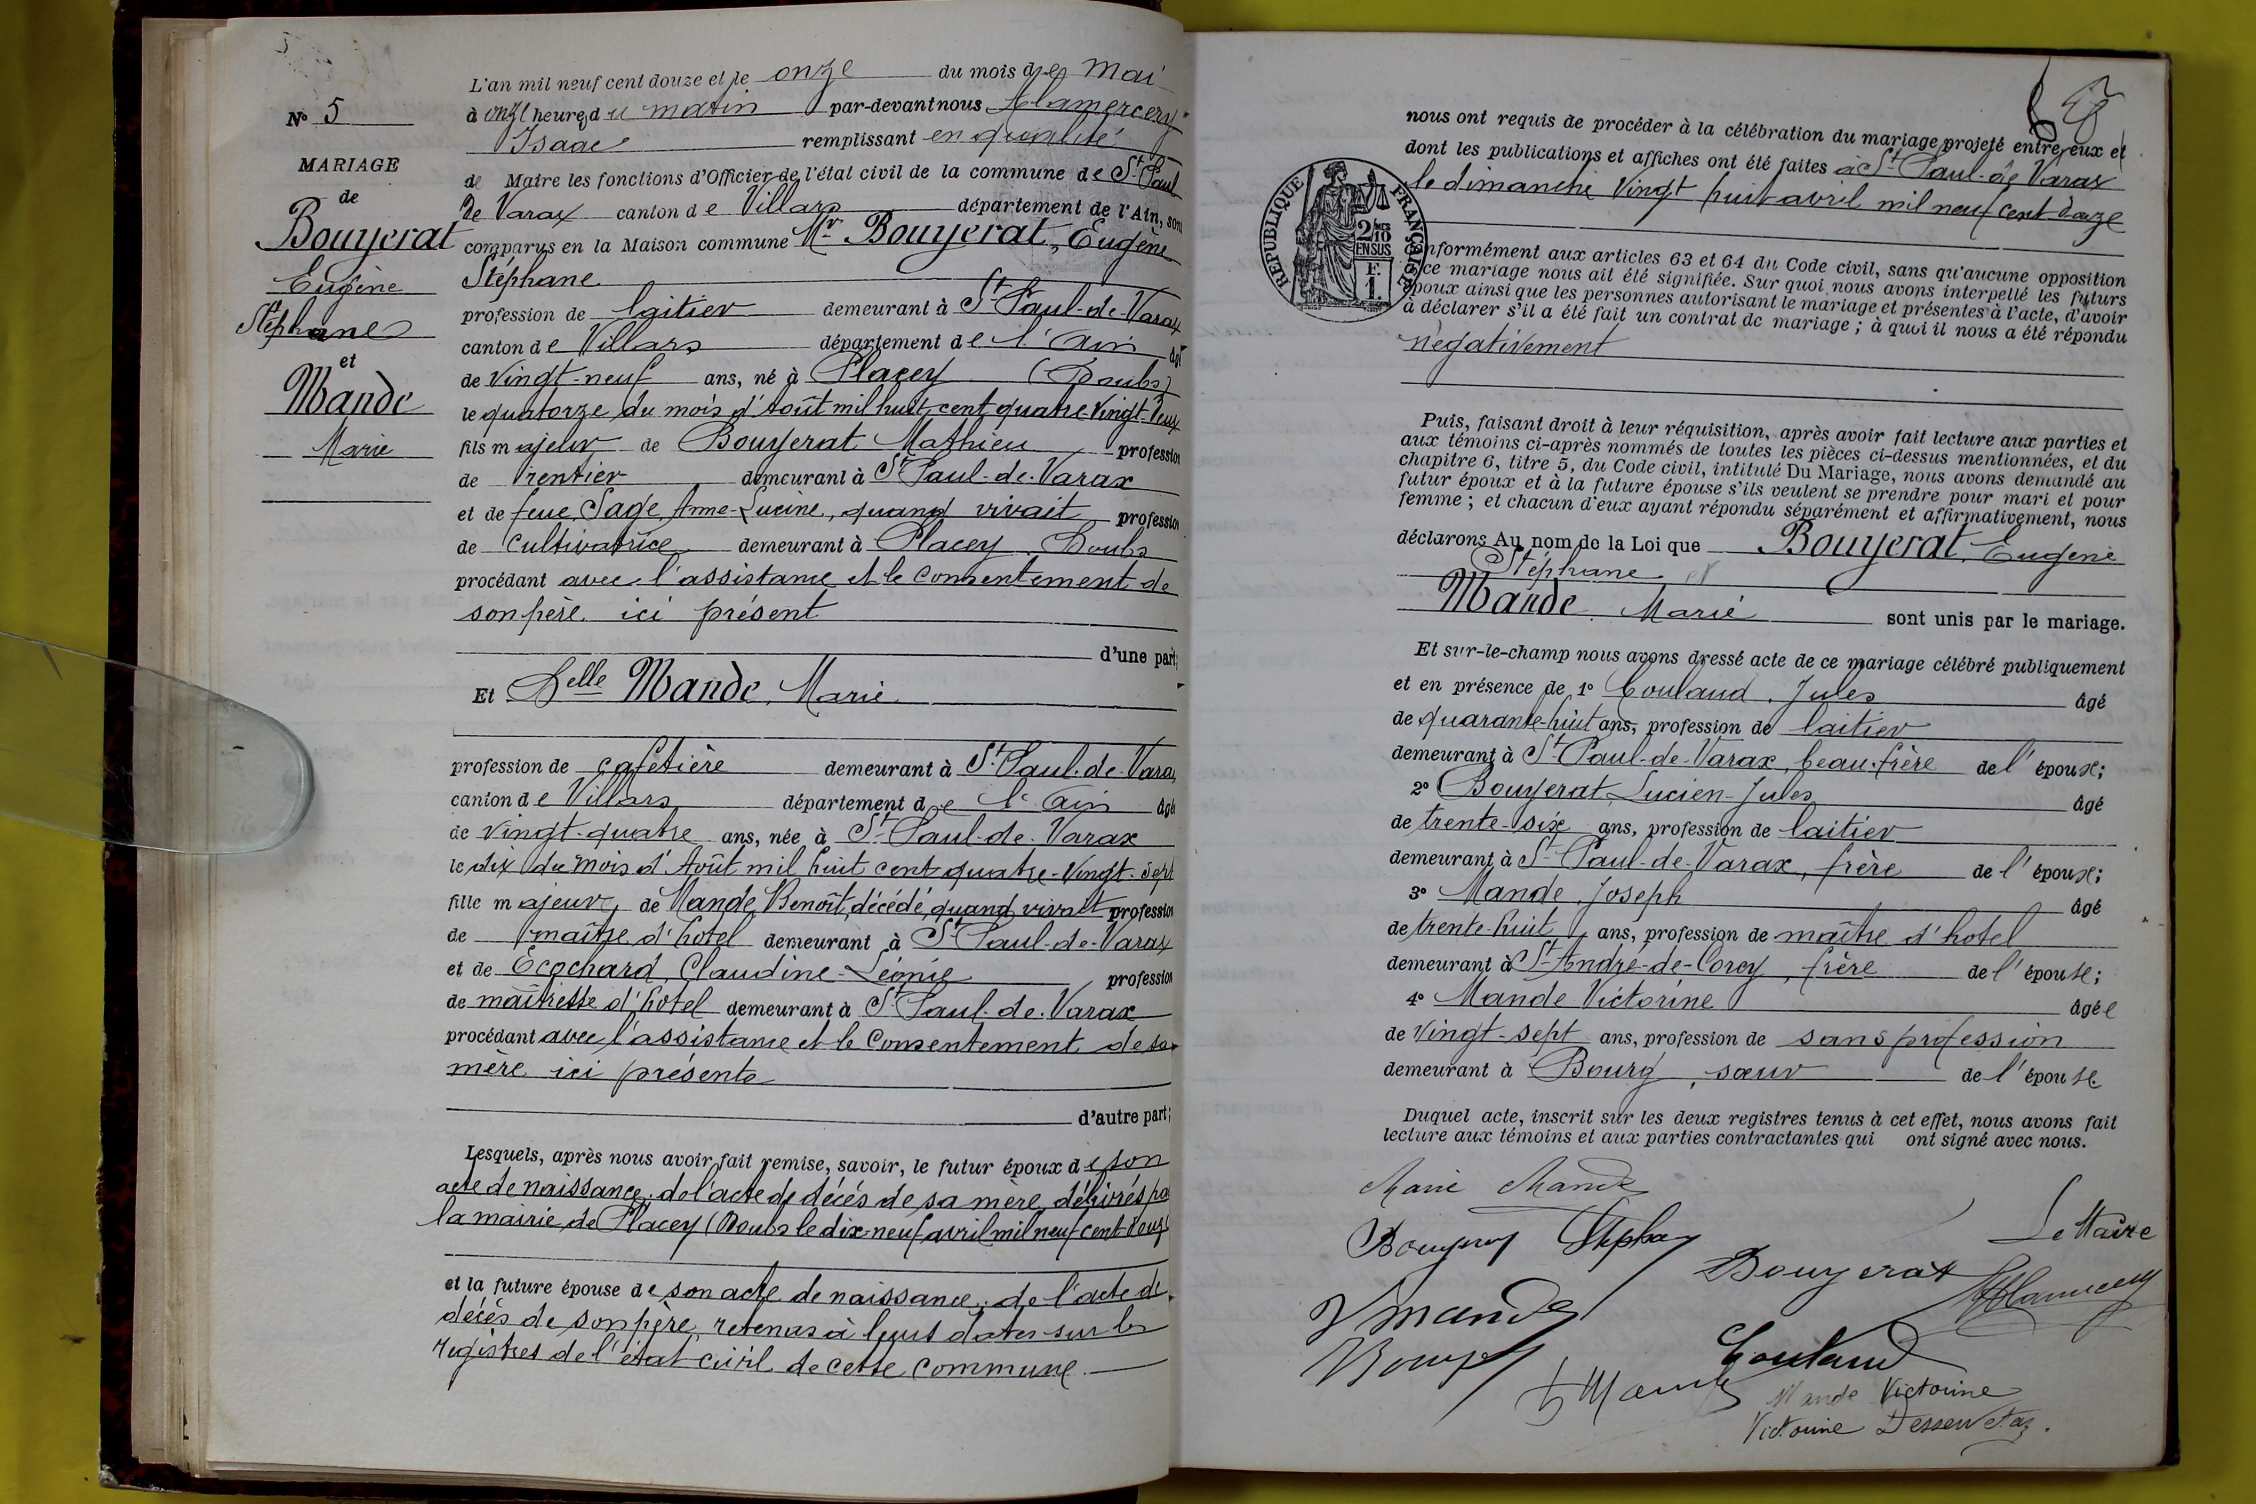 L'an mil neuf cent douze et le onze du mois de mai
à onze heures du matin par-devant nous
Isaac remplissant en qualité
de Maire les fonctions d'Officier de l'état civil de la commune de St Paul
de Varax canton de Villars département de l'Ain, sont
comparus en la Maison commune Mr Bouyerat, Eugène
Stéphane
profession de laitier demeurant à St Paul-de-Varax
canton de Villars département de l'Ain âgé
de vingt-neuf ans, né à Placey (Doubs)
le quatorze du mois d'Août mil huit cent quatre-vingt-deux
fils majeur de Bouyerat Mathieu profession
de rentier demeurant à St Paul-de-Varax
et de feue Sage Anne-Lucine, quand vivait profession
de cultivatrice demeurant à Placey Doubs
procédant avec l'assistance et le consentement de
son père ici présent
d'une part;
Et Delle Mande, Marie
profession de cafetière demeurant à St Paul-de-Varax
canton de Villars département de l'Ain âgée
de vingt-quatre ans, née à St Paul-de-Varax
le dix du mois d'Août mil huit cent quatre-vingt-sept
fille majeure de Mande Benoît, décédé, quand vivait profession
de maître d'hotel demeurant à St Paul-de-Varax
et de Ecochard, Claudine-Léonie profession
de maîtresse d'hotel demeurant à St Paul-de-Varax
procédant avec l'assistance et le consentement de sa
mère ici présente
d'autre part;
Lesquels, après nous avoir fait remise, savoir, le futur époux de son
acte de naissance, de l'acte de décés de sa mère, délivrés pa
la mairie de Placey (Doubs le dix-neuf avril mil neuf cent douze
et la future épouse de son acte de naissance, de l'acte de
décés de son père, retenus à leurs dates sur les
registres de l'état civil de cette commune.
No 5
MARIAGE
de
Bouyerat
Eugène
Stéphane
et
Mande
Marie
nous ont requis de procéder à la célébration du mariage projeté entre eux et
dont les publications et affiches ont été faites à St Paul-de-Varax
le dimanche vingt huit avril mil neuf cent douze
RÉPUBLIQUE FRANÇAISE
2/10
EN SUS
F.
1.
conformément aux articles 63 et 64 du Code civil, sans qu'aucune opposition
ce mariage nous ait été signifiée. Sur quoi nous avons interpellé les futurs
époux ainsi que les personnes autorisant le mariage et présentes à l'acte, d'avoir
à déclarer s'il a été fait un contrat de mariage; à quoi il nous a été répondu
négativement
Puis, faisant droit à leur réquisition, après avoir fait lecture aux parties et
aux témoins ci-après nommés de toutes les pièces ci-dessus mentionnées, et du
chapitre 6, titre 5, du Code civil, intitulé Du Mariage, nous avons demandé au
futur époux et à la future épouse s'ils veulent se prendre pour mari et pour
femme; et chacun d'eux ayant répondu séparément et affirmativement, nous
déclarons Au nom de la Loi que Bouyerat, Eugène
Stéphane et
Mande, Marie sont unis par le mariage.
Et sur-le-champ nous avons dressé acte de ce mariage célébré publiquement
et en présence de 1o Couland, Jules âgé
de quarante-huit ans, profession de laitier
demeurant à St Paul-de-Varax, beau-frère de l'épouse;
2o Bouyerat, Lucien-Jules âgé
de trente-six ans, profession de laitier
demeurant à St Paul-de-Varax, frère de l'épouse;
3o Mande, Joseph âgé
de trente-huit ans, profession de maître d'hotel
demeurant à St André-de-Corcy, frère de l'épouse;
4o Mande Victorine âgée
de vingt-sept ans, profession de sans profession
demeurant à Bourg, sœur de l'épouse.
Duquel acte, inscrit sur les deux registres tenus à cet effet, nous avons fait
lecture aux témoins et aux parties contractantes qui ont signé avec nous.
Marie Mande
Le Maire
Bouyerat
Mande
Couland
Mande Victorine
Victorine